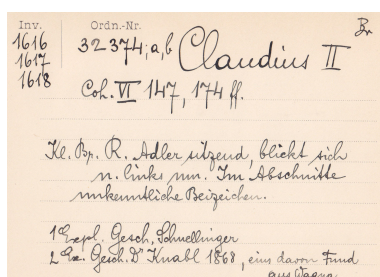 Inv. Ordn.-Nr. Br.
1616 32374; a, b Claudius II
1617
1618
Coh. VI 147, 174 ff.
Kl. Bz. R. Adler sitzend, blickt sich
n. links um. Im Abschnitte
unkenntliche Beizeichen.
1 Expl. Gesch. Schnellinger
2 Ex. Gesch. Dr Knabl 1868, eins davon Fund
aus Wagna